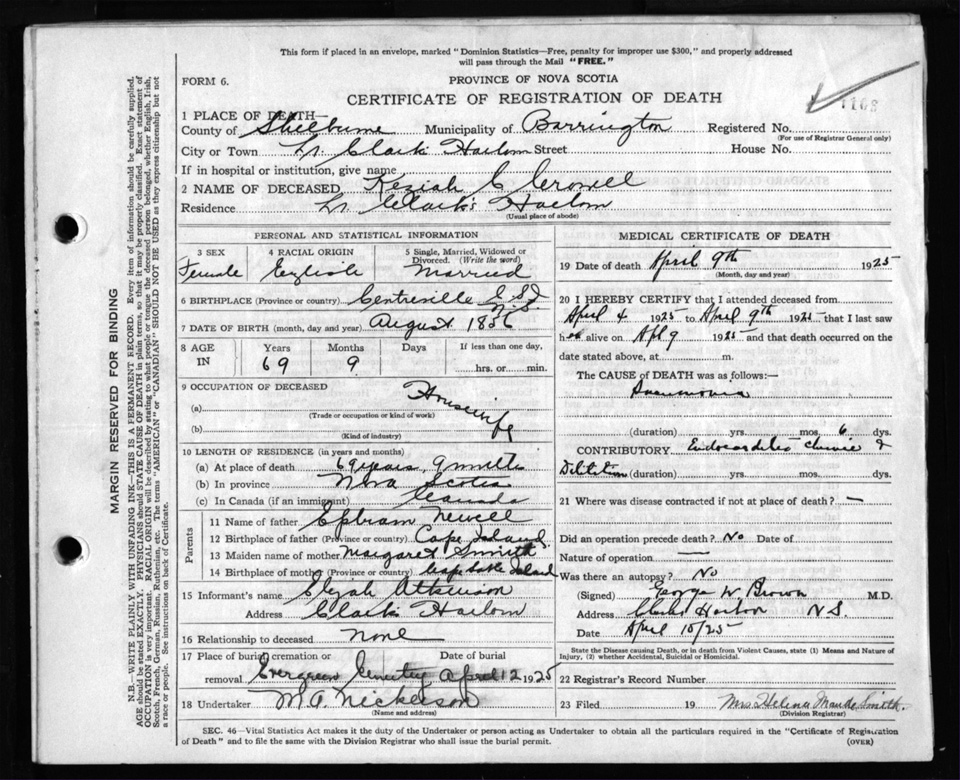 This form if placed in an envelope, marked "Dominion Statistics—Free, penalty for improper use $300," and properly addressed
will pass through the Mail "FREE."
FORM 6.
PROVINCE OF NOVA SCOTIA
CERTIFICATE OF REGISTRATION OF DEATH
1 PLACE OF DEATH—
County of Shelburne Municipality of Barrington Registered No.
(For use of Registrar General only)
City or Town Lr. Clark's Harbour Street House No.
If in hospital or institution, give name
2 NAME OF DECEASED Keziah C Crowell
Residence Lr Clark's Harbour
(Usual place of abode)
PERSONAL AND STATISTICAL INFORMATION
3 SEX 4 RACIAL ORIGIN 5 Single, Married, Widowed or
Divorced. (Write the word)
Female English Married
6 BIRTHPLACE (Province or country) Centreville C S I
N.S.
7 DATE OF BIRTH (month, day and year) August 1856
8 AGE IN Years Months Days If less than one day,
69 9 hrs. or min.
9 OCCUPATION OF DECEASED
(a) Housewife
(Trade or occupation or kind of work)
(b)
(Kind of industry)
10 LENGTH OF RESIDENCE (in years and months)
(a) At place of death 69 years, 9 months
(b) In province Nova Scotia
(c) In Canada (if an immigrant) Canada
Parents
11 Name of father Ephram Newell
12 Birthplace of father (Province or country) Cape Island
13 Maiden name of mother Margaret Smith
14 Birthplace of mother (Province or country) Cape Sable Island
15 Informant's name Elijah Atkinson
Address Clark's Harbour
16 Relationship to deceased None
17 Place of burial, cremation or Date of burial
removal Evergreen Cemetery April 12 1925
18 Undertaker M. A. Nickerson
(Name and address)
MEDICAL CERTIFICATE OF DEATH
19 Date of death April 9th 1925
(Month, day and year)
20 I HEREBY CERTIFY that I attended deceased from
April 4 1925 to April 9th 1925 that I last saw
her alive on Apl 9 1925 and that death occurred on the
date stated above, at m.
The CAUSE OF DEATH was as follows:—
Pneumonia
(duration) yrs. mos. 6 dys.
CONTRIBUTORY Endocarditis Chronic &
Dilitation (duration) yrs. mos. dys.
21 Where was disease contracted if not at place of death? —
Did an operation precede death? No Date of
Nature of operation —
Was there an autopsy? No
(Signed) George W. Brown M.D.
Address Clarks Harbour N S.
Date April 10/25
State the Disease causing Death, or in death from Violent Causes, state (1) Means and Nature of
Injury, (2) whether Accidental, Suicidal or Homicidal.
22 Registrar's Record Number
23 Filed 19 Mrs Helena Maude Smith.
(Division Registrar)
SEC. 46—Vital Statistics Act makes it the duty of the Undertaker or person acting as Undertaker to obtain all the particulars required in the "Certificate of Registration
of Death" and to file the same with the Division Registrar who shall issue the burial permit.
(OVER)
MARGIN RESERVED FOR BINDING
N.B.—WRITE PLAINLY WITH UNFADING INK—THIS IS A PERMANENT RECORD. Every item of information should be carefully supplied.
AGE should be stated EXACTLY. PHYSICIANS should STATE CAUSE OF DEATH in plain terms, so that it may be properly classified. Exact statement of
OCCUPATION is very important. RACIAL ORIGIN will be described by stating to what people or tongue the deceased person belonged, whether English, Irish,
Scotch, French, German, Russian, Ruthenian, etc. The terms "AMERICAN" or "CANADIAN" SHOULD NOT BE USED as they express citizenship but not
a race or people. See instructions on back of Certificate.